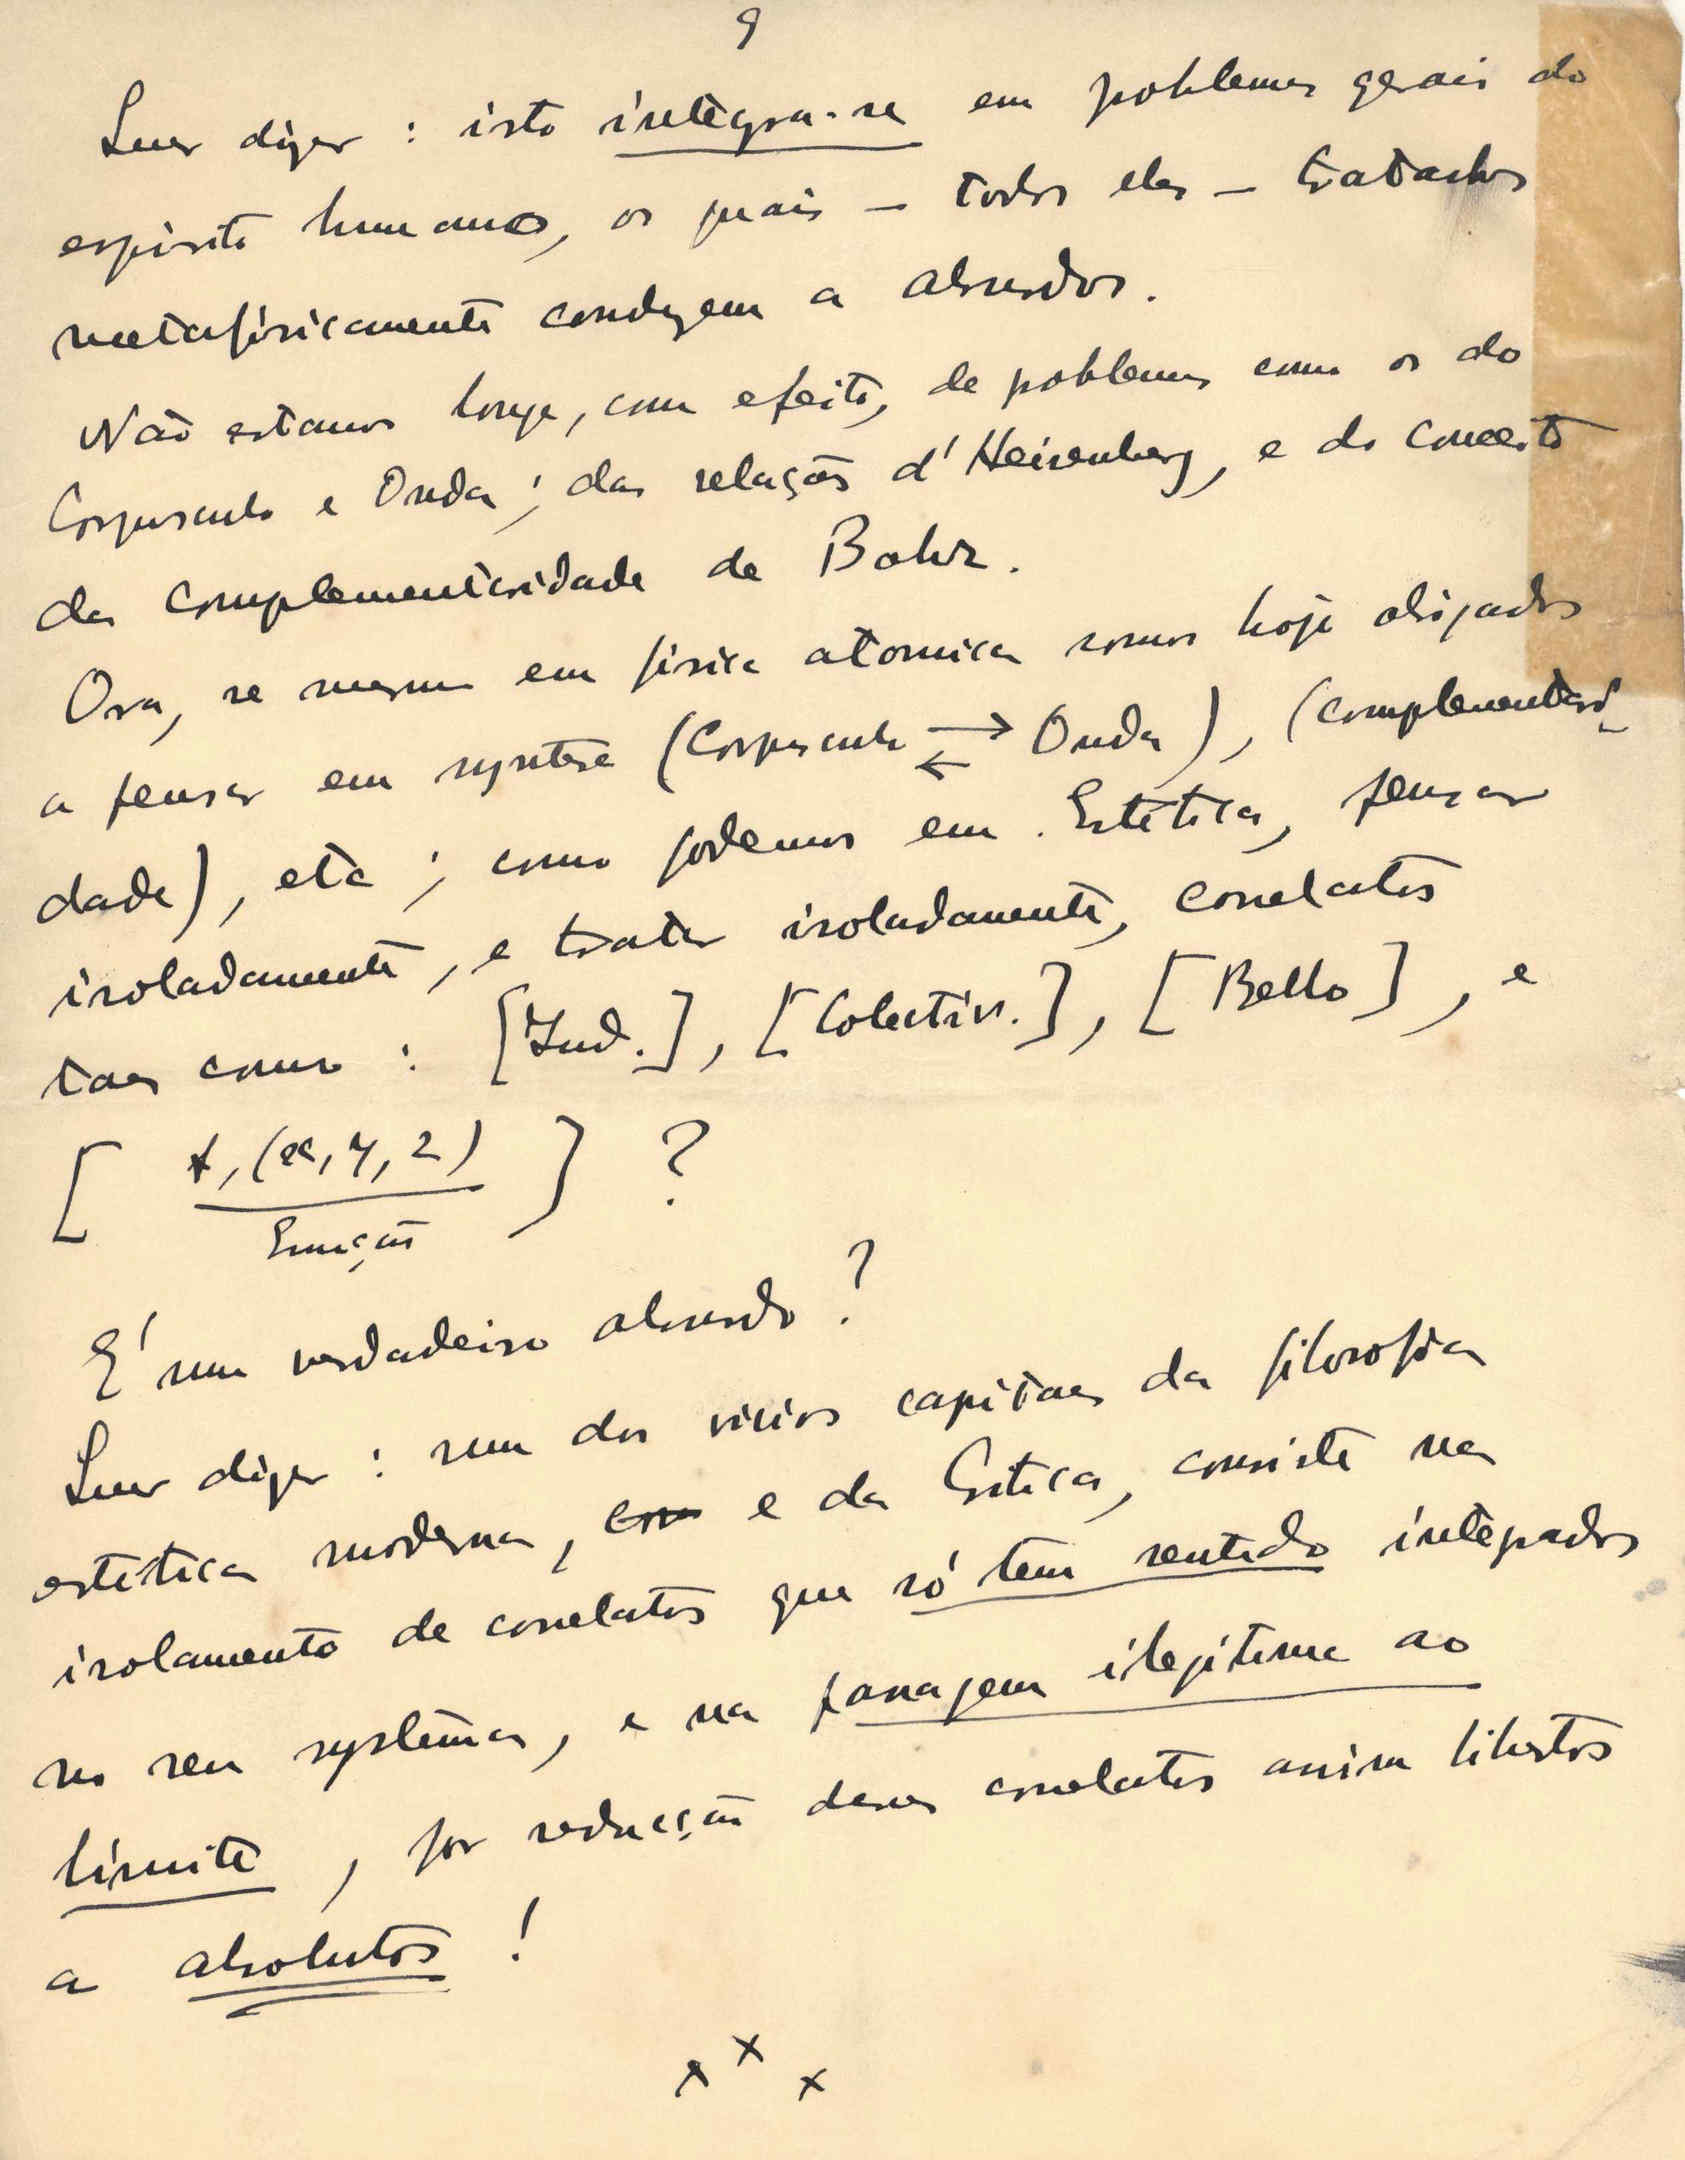 9
Quer dizer : isto integra-se em problemas gerais do
espirito humano, os quais – todos eles – tratados
metafisicamente conduzem a absurdos.
Não estamos longe, com efeito, de problemas como os do
Corpusculo e Onda ; das relações d'Heisenberg, e do conceito
da complementaridade de Bohr.
Ora, se mesmo em fisica atomica somos hoje obrigados
a pensar em syntese (Corpusculo ⇄ Onda), (complementari-
dade), etc ; como podemos em Estética, pensar
isoladamente, e tratar isoladamente, correlatos
taes como : [Ind.], [Colectiv.], [Bello], e
[ t, (x, y, z) ] ?
Emoção
É um verdadeiro absurdo ?
Quer dizer : um dos vicios capitaes da filosofia
estética moderna, com e da Critica, consiste na
isolamento de correlatos que só tem sentido integrados
no seu systema, e na passagem ilegitima ao
limite , por reducção desses correlatos assim libertos
a absolutos !
x x x